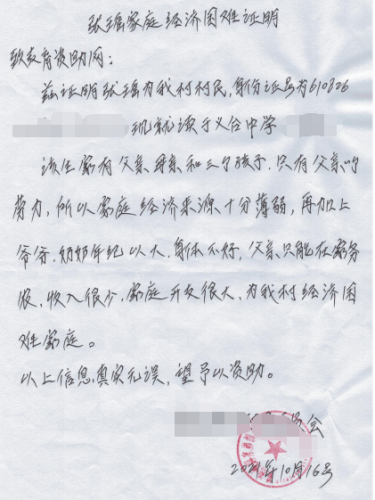 张瑶家庭经济困难证明
致教育资助网：
兹证明张瑶为我村村民，身份证号为610826
现就读于义合中学
该生家有父亲，母亲和三个孩子，只有父亲的
劳力，所以家庭经济来源十分薄弱，再加上
爷爷，奶奶年纪以大，身体不好，父亲只能在家务
农，收入很少，家庭开支很大，为我村经济困
难家庭。
以上信息真实无误，望予以资助。
员会
2021年10月16号